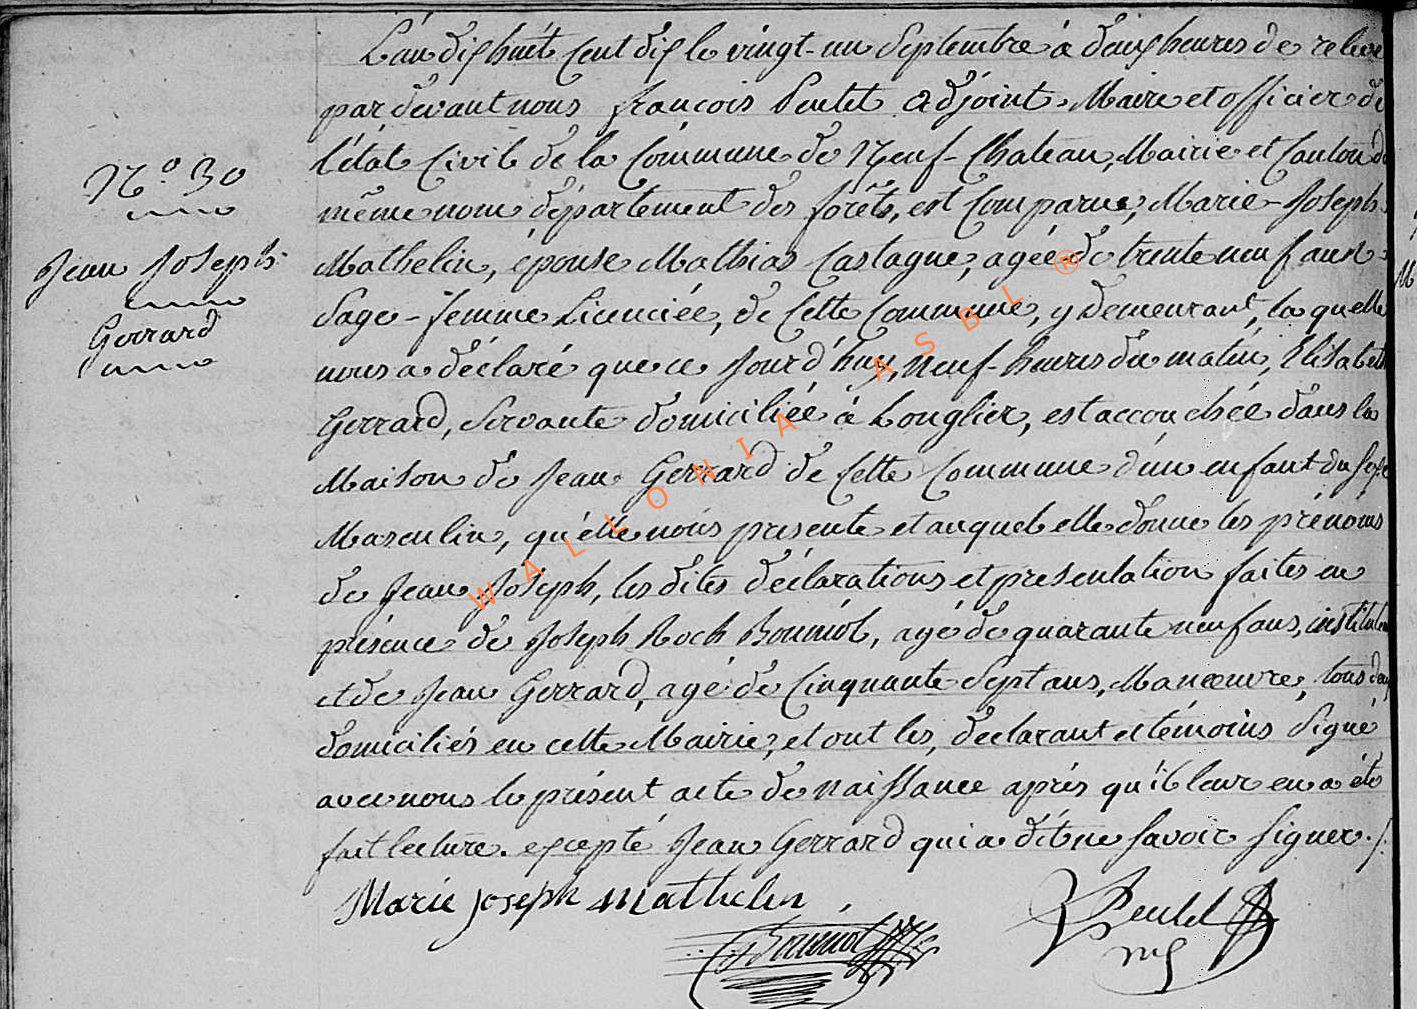 N.º 30
Jean Joseph
Gerrard
L'an dix huit cent dix le vingt-un Septembre à deux heures de relevé
par devant nous françois Peulet adjoint-Maire et officier de
l'état Civil de la Commune de Neuf-Chateau, Mairie et Canton de
même nom département des forêts, est Comparue, Marie-Joseph
Mathelin, épouse Mathias Castagne, agée de trente neuf ans
Sage-femme Licenciée, de Cette Commune, y demeurant, la quelle
nous a déclaré que ce Jourd'huy, neuf-heures du matin, Elisabeth
Gerrard, Servante domiciliée à Longlier, est accouchée dans la
Maison de Jean Gerrard de Cette Commune d'un enfant du sexe
Masculin, qu'elle nous presente et auquel elle donne les prénoms
de Jean Joseph, les dites déclarations et presentation faites en
présence de Joseph Roch Bouniol, agé de quarante neuf ans, instituteur
et de Jean Gerrard, agé de Cinquante Sept ans, Manoeuvre, tous deux
domiciliés en cette Mairie, et ont les, declarant et témoins Signé
avec nous le présent acte de naissance après qu'il leur en a été
fait lecture. excepté Jean Gerrard qui a dit ne Savoir signer./.
Marie joseph Mathelin
Bouniol
Peulet
WALLONIA ASBL ®